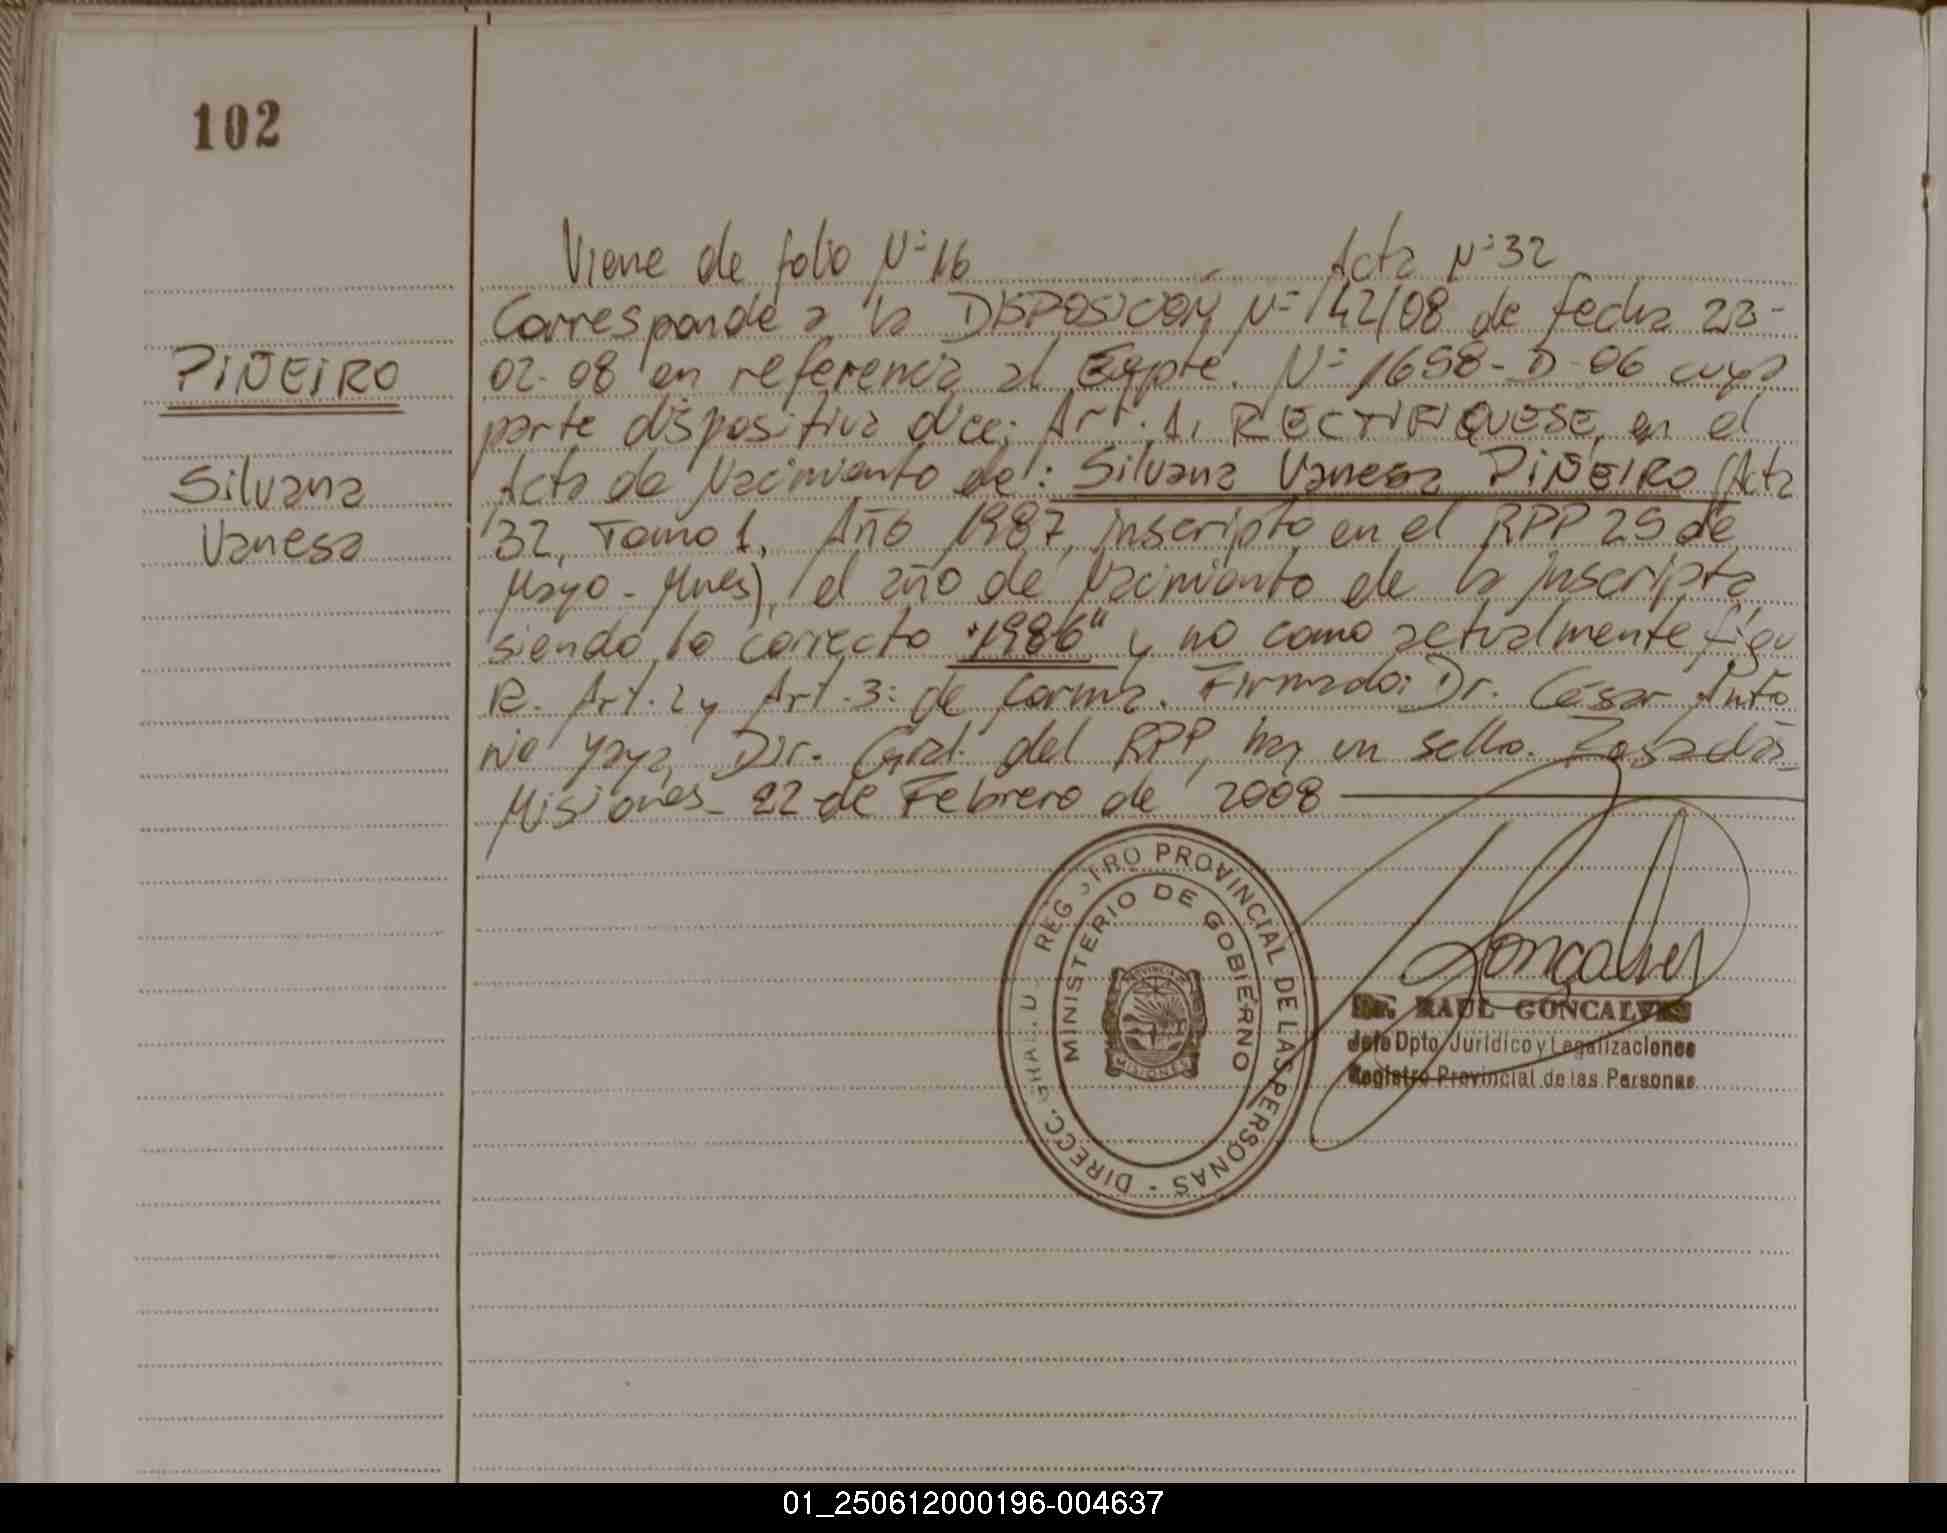 102
Viene de folio Nº 16 Acta Nº 32
PIÑEIRO
Silvana
Vanesa
Corresponde a la DISPOSICIÓN Nº 142/08 de fecha 22-
02-08 en referencia al Expte. Nº 1698-D-06 cuya
parte dispositiva dice: Art. 1. RECTIFIQUESE, en el
Acta de Nacimiento de: Silvana Vanesa PIÑEIRO (Acta
32, Tomo 1, Año 1987, inscripto en el RPP 25 de
Mayo - Mnes), el año de Nacimiento de la inscripta
siendo lo correcto "1986" y no como actualmente figu
R. Art. 2 y Art. 3: de forma. Firmado: Dr. César Anto
nio Yaya, Dir. Gral. del RPP, hay un sello. Posadas
Misiones - 22 de Febrero de 2008
REGISTRO PROVINCIAL DE LAS PERSONAS - DIRECC. GRAL.
MINISTERIO DE GOBIERNO
PROVINCIA DE
MISIONES
Goncalves
Dr. RAUL GONCALVES
Jefe Dpto. Jurídico y Legalizaciones
Registro Provincial de las Personas
01_250612000196-004637